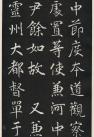 中節度本道觀察
處置等使兼河中
尹餘如故又兼
靈州大都督單于